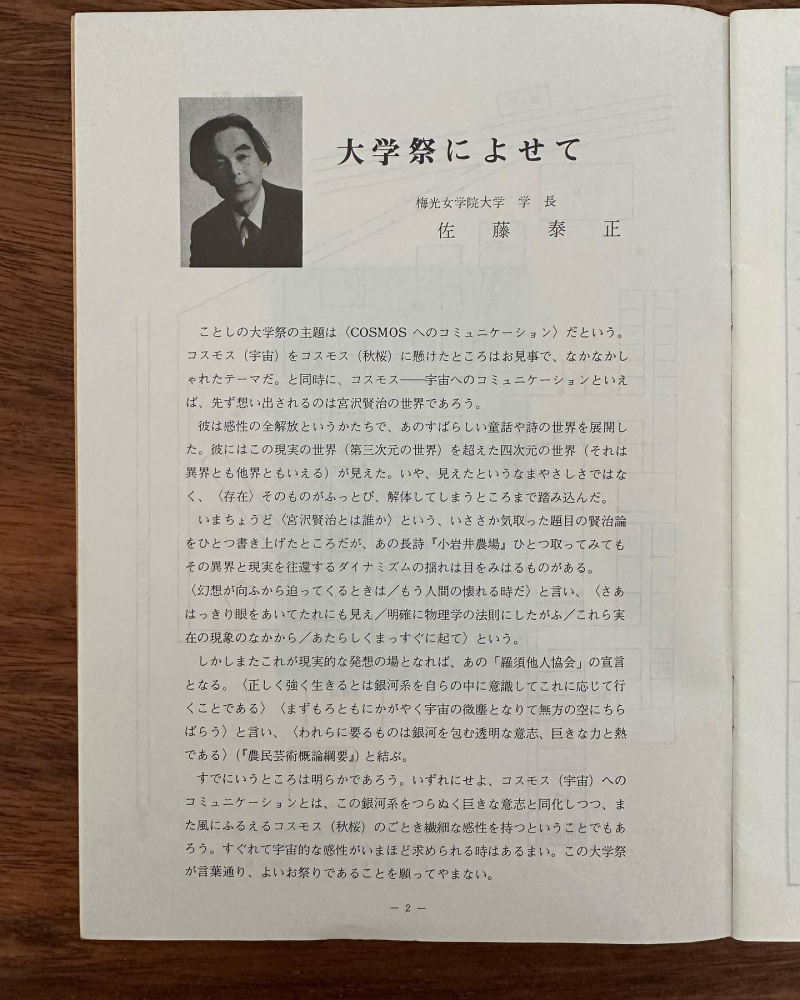 大学祭によせて
梅光女学院大学　学　長
佐　藤　泰　正
ことしの大学祭の主題は〈COSMOS へのコミュニケーション〉だという。
コスモス（宇宙）をコスモス（秋桜）に懸けたところはお見事で、なかなかし
ゃれたテーマだ。と同時に、コスモス――宇宙へのコミュニケーションといえ
ば、先ず想い出されるのは宮沢賢治の世界であろう。
彼は感性の全解放というかたちで、あのすばらしい童話や詩の世界を展開し
た。彼にはこの現実の世界（第三次元の世界）を超えた四次元の世界（それは
異界とも他界ともいえる）が見えた。いや、見えたというなまやさしさではな
く、〈存在〉そのものがふっとび、解体してしまうところまで踏み込んだ。
いまちょうど〈宮沢賢治とは誰か〉という、いささか気取った題目の賢治論
をひとつ書き上げたところだが、あの長詩『小岩井農場』ひとつ取ってみても
その異界と現実を往還するダイナミズムの揺れは目をみはるものがある。
〈幻想が向ふから迫ってくるときは／もう人間の懐れる時だ〉と言い、〈さあ
はっきり眼をあいてたれにも見え／明確に物理学の法則にしたがふ／これら実
在の現象のなかから／あたらしくまっすぐに起て〉という。
しかしまたこれが現実的な発想の場となれば、あの「羅須他人協会」の宣言
となる。〈正しく強く生きるとは銀河系を自らの中に意識してこれに応じて行
くことである〉〈まずもろともにかがやく宇宙の微塵となりて無方の空にちら
ばらう〉と言い、〈われらに要るものは銀河を包む透明な意志、巨きな力と熱
である〉（『農民芸術概論綱要』）と結ぶ。
すでにいうところは明らかであろう。いずれにせよ、コスモス（宇宙）への
コミュニケーションとは、この銀河系をつらぬく巨きな意志と同化しつつ、ま
た風にふるえるコスモス（秋桜）のごとき繊細な感性を持つということでもあ
ろう。すぐれて宇宙的な感性がいまほど求められる時はあるまい。この大学祭
が言葉通り、よいお祭りであることを願ってやまない。
― 2 ―